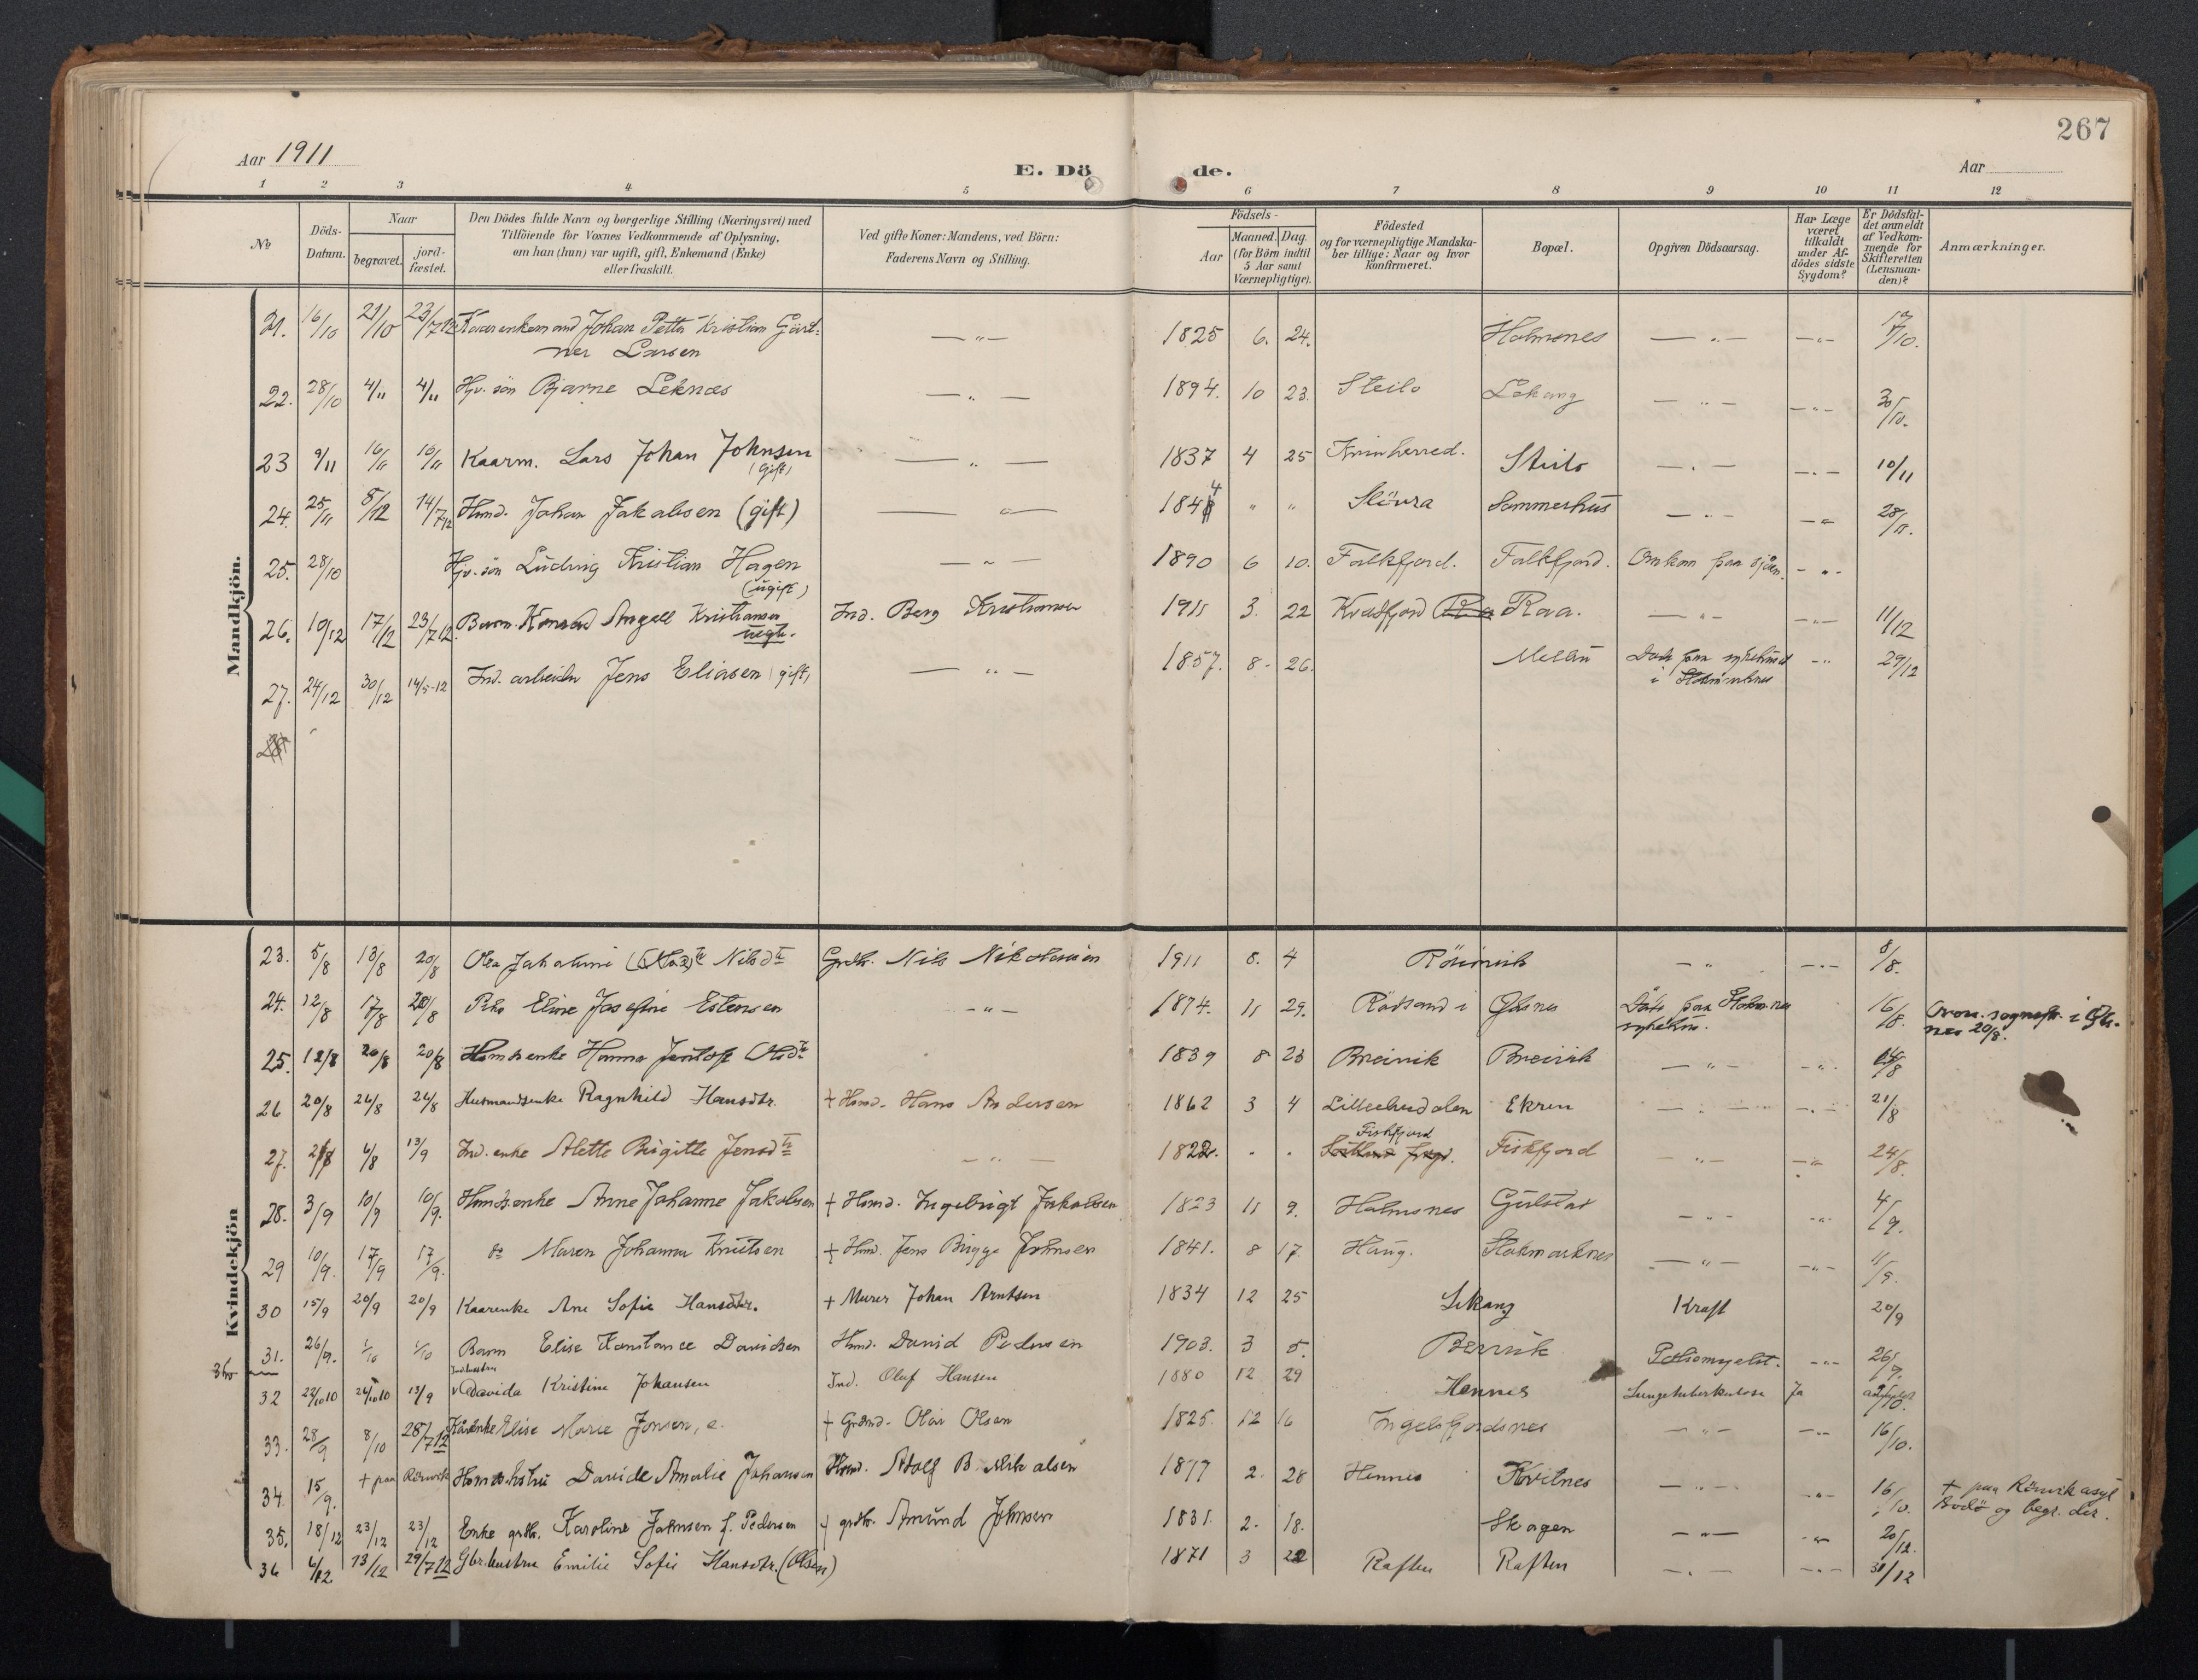 267
Aar 1911
E. Dö de.
Aar
1 2 3 4 5 6 7 8 9 10 11 12
№
Döds-Datum.
Naar
begravet.
jord-fæstet.
Den Dödes fulde Navn og borgerlige Stilling (Næringsvei) med
Tilföiende for Voxnes Vedkommende af Oplysning,
om han (hun) var ugift, gift, Enkemand (Enke)
eller fraskilt.
Ved gifte Koner: Mandens, ved Börn:
Faderens Navn og Stilling.
Födsels-
Aar
Maaned. Dag.
(for Börn indtil
5 Aar samt
Værnepligtige).
Födested
og for værnepligtige Mandska-
ber tillige: Naar og hvor
Konfirmeret.
Bopæl.
Opgiven Dödsaarsag.
Har Læge
været
tilkaldt
under Af-
dödes sidste
Sygdom?
Er Dödsfal-
det anmeldt
af Vedkom-
mende for
Skifteretten
(Lensman-
den)?
Anmærkninger.
Mandkjön.
21. 16/10 21/10 23/7 12 Kaarenkemand Johan Petter Kristian Gart- — " — 1825 6. 24. Holmsnes — " — — " — /10.
ner Larsen
22. 28/10 4/11 4/11 Hjv. sön Bjarne Leknæs — " — 1894. 10 23. Steilo Lekang — " — — " — 30/10.
23 9/11 16/11 16/11 Kaarm. Lars Johan Johnsen — " — 1837 4 25 Kvinherred. Steilo — " — — " — 10/11
(gift)
24. 25/11 8/12 14/7 12 Hmd. Johan Jakobsen (gift) — " — 1844 " " Slövra Sommerhus — " — — " — 28/11.
25. 28/10 Hjv. sön Ludvig Kristian Hagen — " — 1890 6 10. Falkfjord. Falkfjord. Omkom paa sjöen. — " —
(ugift)
26. 10/12 17/12 23/7 12. Barn. Konrad Angell Kristiansen Ind. Berg Kristiansen 1911 3. 22 Kvæfjord Roa. — " — — " — 11/12
uegte.
27. 24/12 30/12 14/5-12 Ind. arbeider Jens Eliasen (gift) — " — 1857. 8 - 26. Melbu Döde paa sykehuset — " 29/12
i Stokmarknes
28
Kvindekjön
23. 5/8 13/8 20/8 Jakobine Nilsdtr Grdbr. Nils Nikolaisen 1911 8. 4 Römvik — " — — " — 8/8.
24. 12/8 17/8 20/8 Pike Eline Josefine Estensen — " — 1874. 11 29. Rödsand i Öksnes Döde paa Stokm.nes 16/8. Oron. sognepr. i Øks-
sykehus. nes 20/8.
25. 12/8 20/8 20/8 Hmdsenke Hanna Jentoft Olsdtr 1839 8 23 Breivik Breivik — " — — " — 14/8
26 20/8 26/8 26/8 Husmandsenke Ragnhild Hansdtr. + Hmd. Hans Andersen 1862 3 4 Lilleherdalen Ekren — " — — " — 21/8
27. 6/8 13/9 Ind. enke Alette Birgitte Jensdtr — " — 1822. " " Fiskfjord Fiskfjord — " — — " — 24/8.
28. 3/9 10/9 10/9. Hmdsenke Anne Johanne Jakobsen + Hmd. Ingebrigt Jakobsen 1823 11 9. Holmsnes Gulstad — " — — " — 4/9.
29 10/9. 17/9 17/9. do Maren Johanna Knutsen + Hmd. Jens Brigge Johnsen 1841. 8 17. Haug. Stokmarknes — " — — " — 11/9.
30 15/9 20/9 20/9 Kaarenke Ane Sofie Hansdtr. + Murer Johan Arntsen 1834 12 25 Lekang Kræft 20/9
31. 26/9. 1/10 1/10 Barn Elise Konstance Davidsen Hmd. David Pedersen 1903. 3 5. Bervik Poliomyelit. — " — 26/9.
32 22/10 10 26/10 10 13/9 Ind.hustru Davida Kristine Johansen Ind. Oluf Hansen 1880 12 29 Hennes Lungetuberkulose Ja
33. 28/9 8/10 28/7 12 Kårenke Elise Marie Jonsen, e. + Grdmd. Olai Olsen 1825. 12 16 Ingelsfjordsnes — " — — " — 16/10.
34. 15/9. + paa Rönvik Hmdshustru Davide Amalie Johansen Hmd. Adolf B. Mikalsen 1877 2. 28 Hennes Kvitnes — " — — " — 16/10. + paa Rönvik asyl
Bodö og begr. der.
35. 18/12 23/12 23/12 Enke grdbr. Karoline Johnsen f. Pedersen + grdbr. Amund Johnsen 1831. 2. 18. Skogen — " — — " — 20/12.
36 6/12 13/12 29/7 12 Gbr.hustru Emilie Sofie Hansdtr. (Olsen) 1871 3 22 Raften Raften — " — — " — 30/12